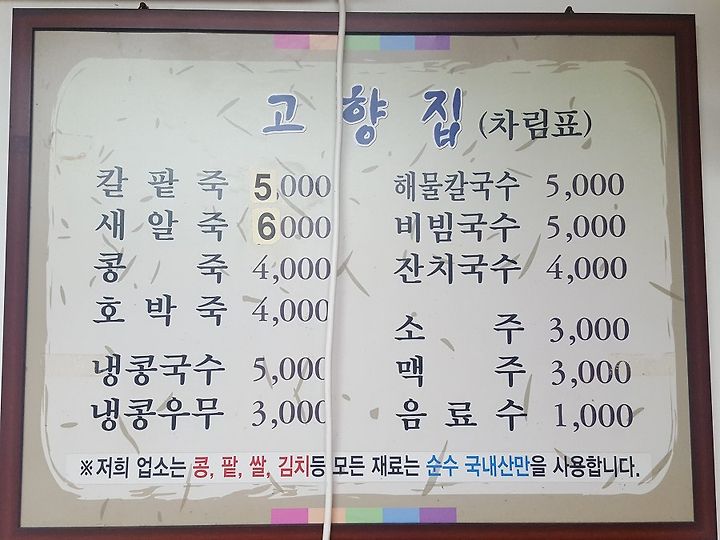 고향집 (차림표)
칼팥죽 5,000
새알죽 6000
콩죽 4,000
호박죽 4,000
냉콩국수 5,000
냉콩우무 3,000
해물칼국수 5,000
비빔국수 5,000
잔치국수 4,000
소주 3,000
맥주 3,000
음료수 1,000
※저희 업소는 콩, 팥, 쌀, 김치등 모든 재료는 순수 국내산만을 사용합니다.